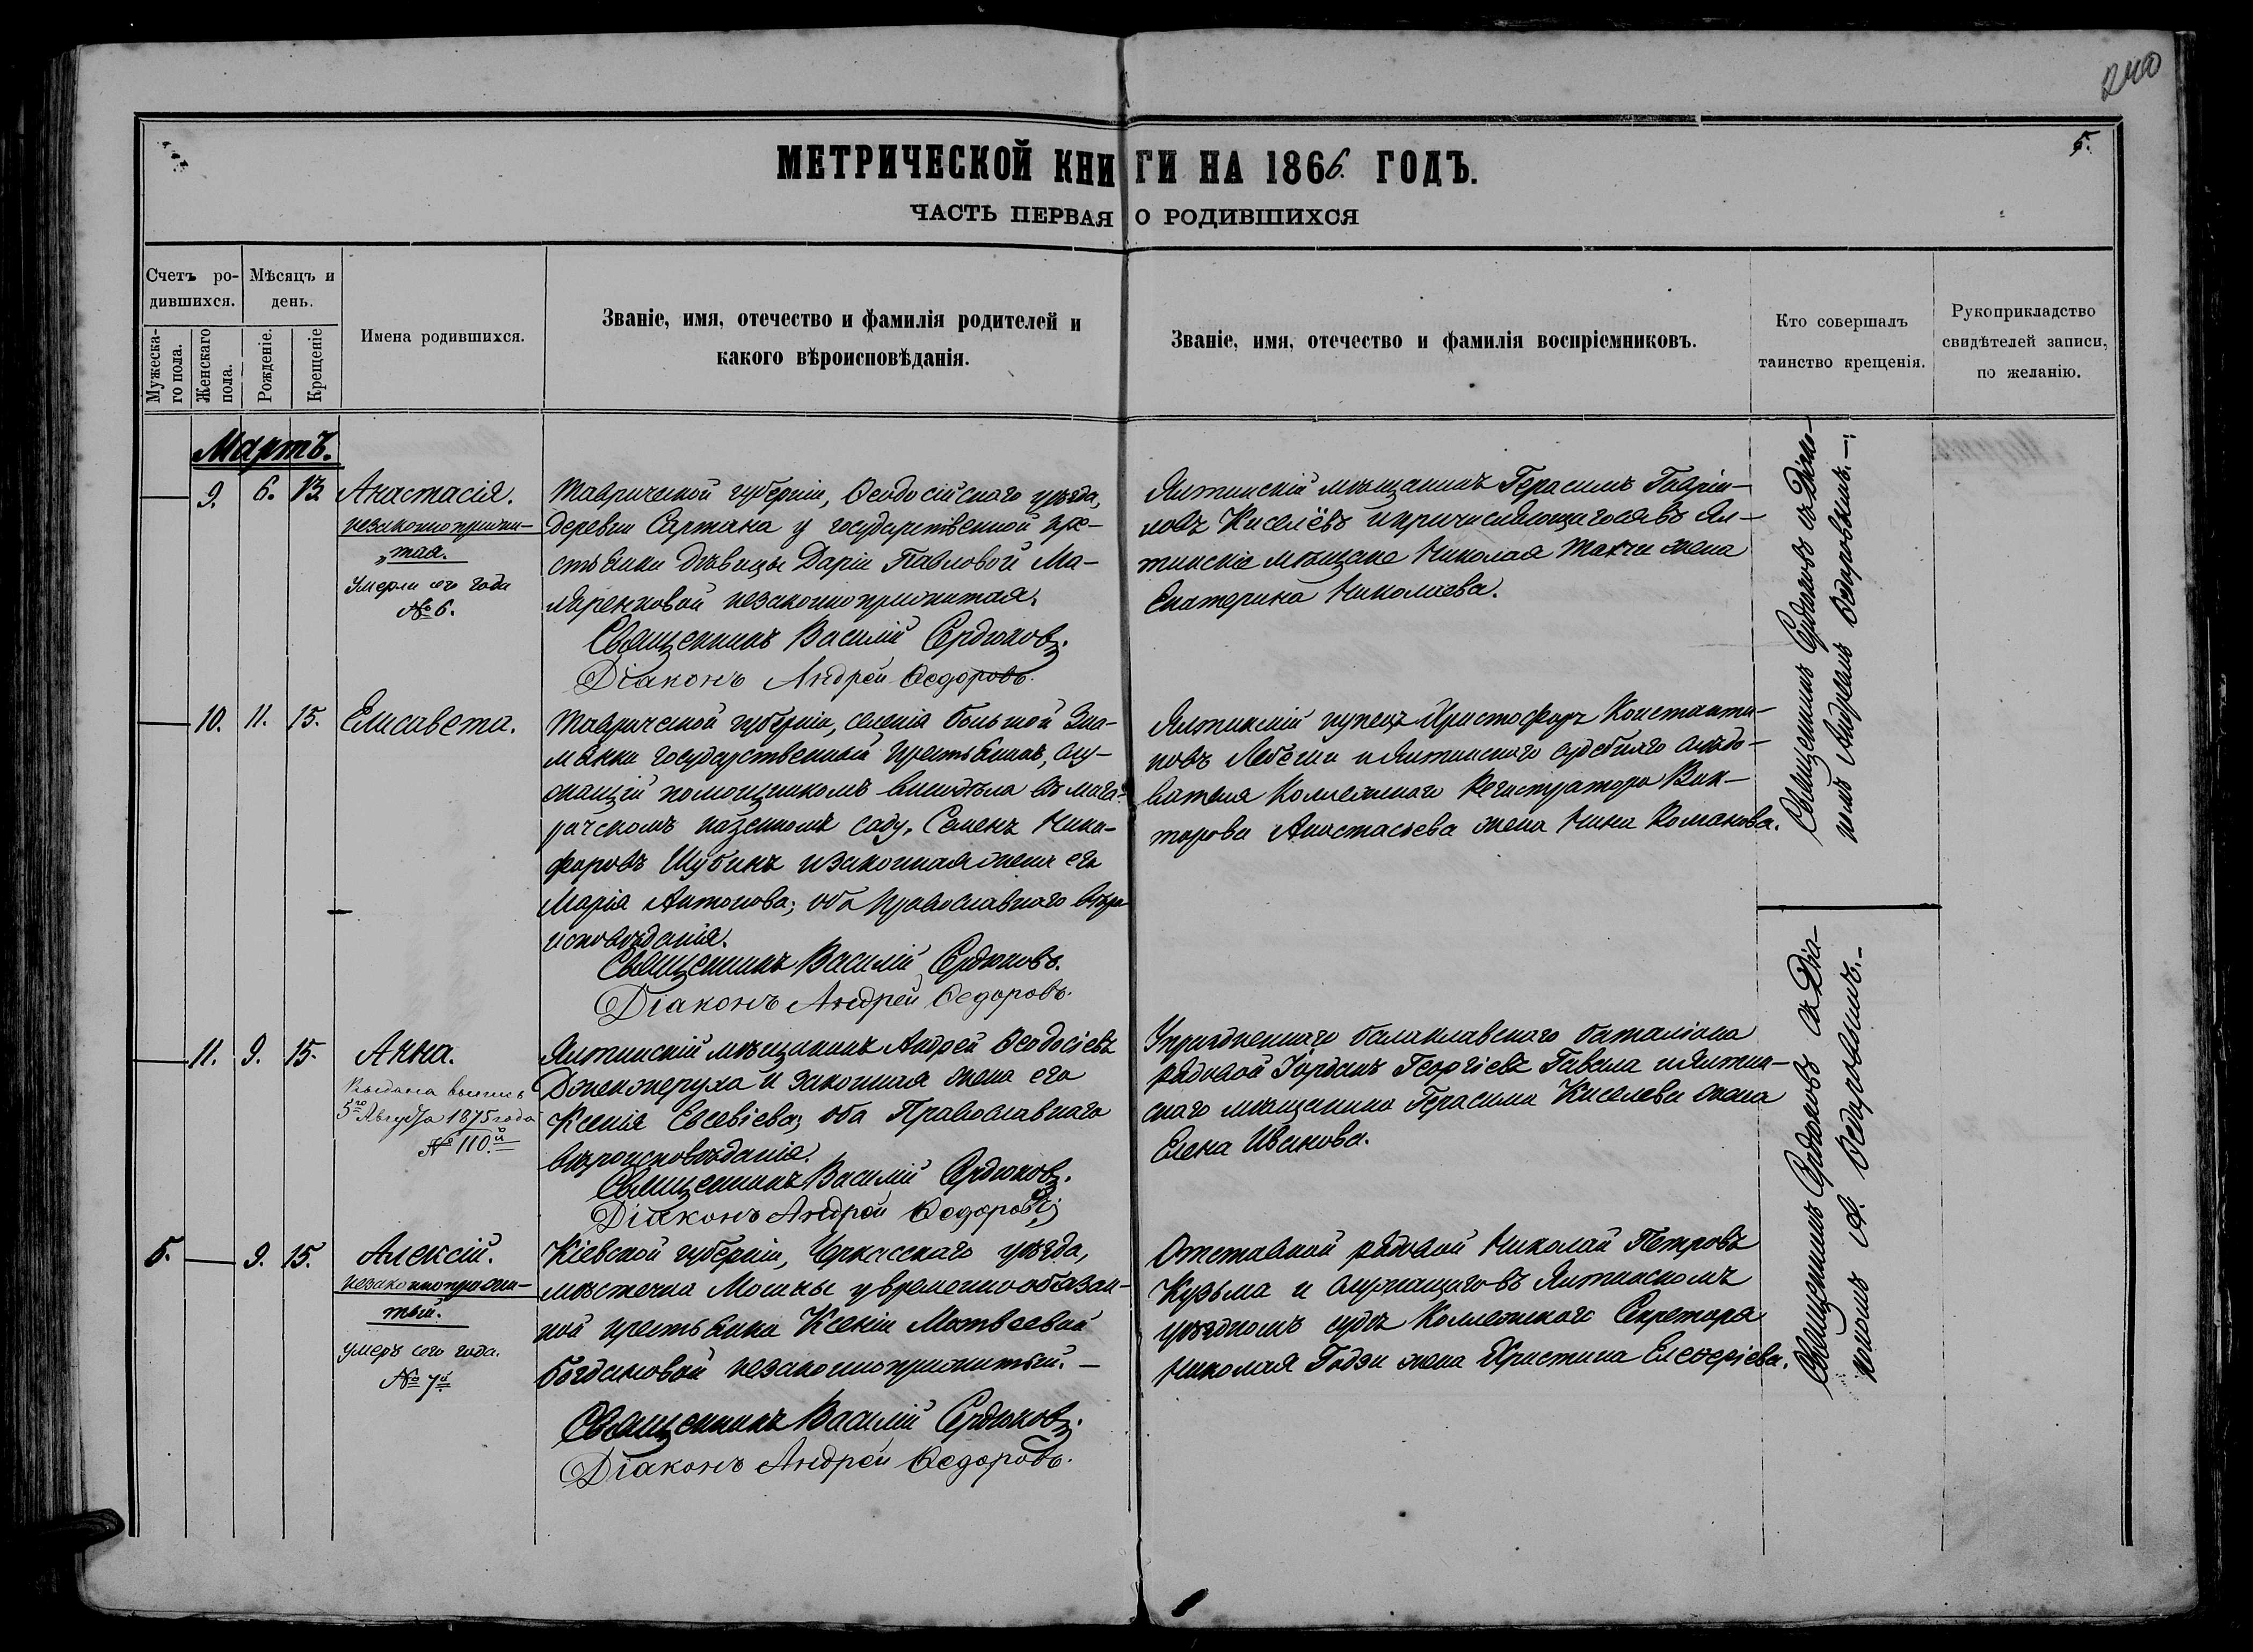 240
5.
МЕТРИЧЕСКОЙ КНИГИ НА 1866. ГОДЪ.
ЧАСТЬ ПЕРВАЯ О РОДИВШИХСЯ
Счетъ ро-
дившихся.
Мѣсяцъ и
день.
Мужеска-
го пола.
Женскаго
пола.
Рожденіе.
Крещеніе
Имена родившихся.
Званіе, имя, отечество и фамилія родителей и
какого вѣроисповѣданія.
Званіе, имя, отечество и фамилія воспріемниковъ.
Кто совершалъ
таинство крещенія.
Рукоприкладство
свидѣтелей записи,
по желанію.
Мартъ.
9. 6. 13. Анастасія.
незаконноприжи-
тая.
Умерла сего года
№ 6.
Таврической губерніи, Ѳеодосійскаго уѣзда,
деревни Сартана у государственной кре-
стьянки дѣвицы Даріи Павловой Ма-
ляренковой незаконноприжитая.
Священникъ Василій Сердюковъ.
Діаконъ Андрей Ѳедоровъ.
Ялтинскій мѣщанинъ Герасимъ Гаврiи-
ловъ Киселёвъ и причисляющагося въ Ял-
тинскіе мѣщане Николая Такчи жена
Екатерина Николаева.
Священникъ Сердюковъ съ Діако-
номъ Андреемъ Ѳедоровымъ.—
10. 11. 15. Елисавета.
Таврической губерніи, селенія большой Зна-
мянки государственный крестьянинъ, слу-
жащій помощникомъ винодѣла въ Мага-
рачскомъ казенномъ саду, Семенъ Ники-
форовъ Шубинъ и законная жена его
Марія Антонова; оба Православнаго вѣро-
исповѣданія.
Священникъ Василій Сердюковъ.
Діаконъ Андрей Ѳедоровъ.
Ялтинскій купецъ Христофоръ Константи-
новъ и Ялтинскаго судебнаго слѣдо-
вателя Коллежскаго Регистратора Вик-
торова Анастасьева жена Нина Романова.
11. 9. 15. Анна.
Выдана выпись
5го Августа 1875 года
№ 110.й
Ялтинскій мѣщанинъ Андрей Ѳеодосіевъ
Дженжеруха и законная жена его
Ксенія Евсевіева; оба Православнаго
вѣроисповѣданія.
Священникъ Василій Сердюковъ.
Діаконъ Андрей Ѳедоровъ
Упраздненнаго балаклавскаго баталіона
рядовой Іорданъ Георгіевъ Гавала и Ялтин-
скаго мѣщанина Герасима Киселева жена
Елена Иванова.
Священникъ Сердюковъ съ Діа-
кономъ А. Ѳедоровымъ.—
5. 9. 15. Алексій.
незаконноприжи-
тый.
умеръ сего года.
№ 7й
Кіевской губерніи, Черкасскаго уѣзда,
мѣстечка Мошны у временно-обязан-
ной крестьянки Ксеніи Матвеевой
богдановой незаконноприжитый.—
Священникъ Василій Сердюковъ.
Діаконъ Андрей Ѳедоровъ.
Отставной рядовой Николай Петровъ
Кузьма и служащаго въ Ялтинскомъ
уѣздномъ судѣ Коллежскаго Секретаря
Николая Годзи жена Христина Елевѳеріева.